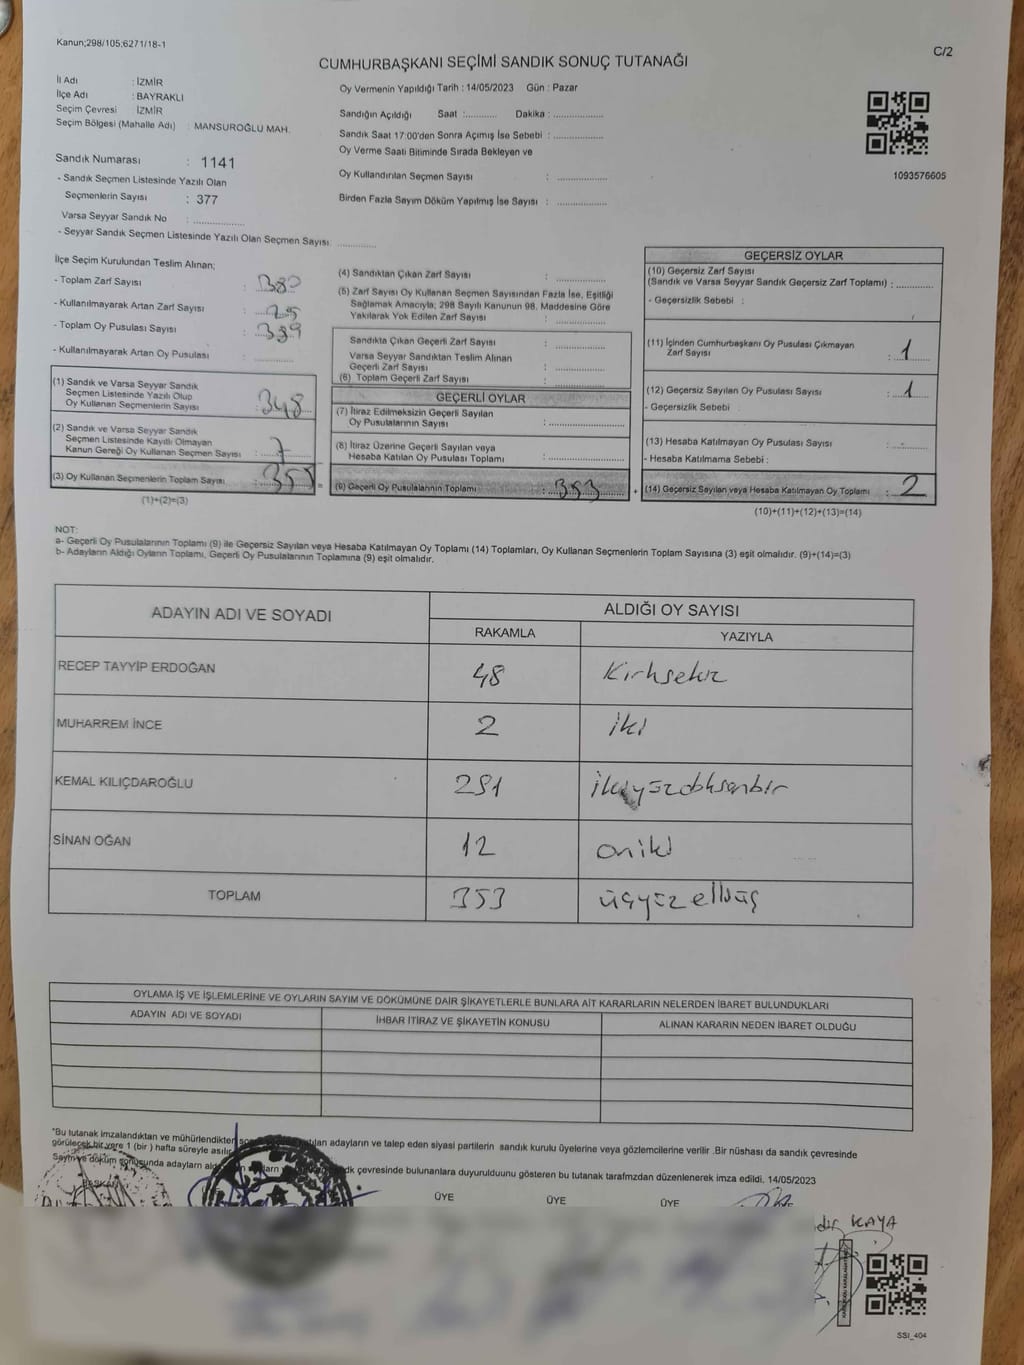 Kanun;298/105;6271/18-1
C/2
CUMHURBAŞKANI SEÇİMİ SANDIK SONUÇ TUTANAĞI
İl Adı : İZMİR
İlçe Adı : BAYRAKLI
Seçim Çevresi : İZMİR
Seçim Bölgesi (Mahalle Adı) : MANSUROĞLU MAH.
Oy Vermenin Yapıldığı Tarih : 14/05/2023 Gün : Pazar
Sandığın Açıldığı Saat :........... Dakika : ..................
Sandık Saat 17:00'den Sonra Açımış İse Sebebi : ..................
Oy Verme Saati Bitiminde Sırada Bekleyen ve
Oy Kullandırılan Seçmen Sayısı : ..................
Birden Fazla Sayım Döküm Yapılmış İse Sayısı : ..................
1093576605
Sandık Numarası : 1141
- Sandık Seçmen Listesinde Yazılı Olan
Seçmenlerin Sayısı : 377
Varsa Seyyar Sandık No : ..................
- Seyyar Sandık Seçmen Listesinde Yazılı Olan Seçmen Sayısı: .............
İlçe Seçim Kurulundan Teslim Alınan;
- Toplam Zarf Sayısı : 380
- Kullanılmayarak Artan Zarf Sayısı : 25
- Toplam Oy Pusulası Sayısı :
- Kullanılmayarak Artan Oy Pusulası : .............
(1) Sandık ve Varsa Seyyar Sandık
Seçmen Listesinde Yazılı Olup
Oy Kullanan Seçmenlerin Sayısı : 348
(2) Sandık ve Varsa Seyyar Sandık
Seçmen Listesinde Kayıtlı Olmayan
Kanun Gereği Oy Kullanan Seçmen Sayısı : 7
(3) Oy Kullanan Seçmenlerin Toplam Sayısı : 355 =
(1)+(2)=(3)
(4) Sandıktan Çıkan Zarf Sayısı : ..................
(5) Zarf Sayısı Oy Kullanan Seçmen Sayısından Fazla İse, Eşitliği
Sağlamak Amacıyla; 298 Sayılı Kanunun 98. Maddesine Göre
Yakılarak Yok Edilen Zarf Sayısı : ..................
Sandıkta Çıkan Geçerli Zarf Sayısı : ..................
Varsa Seyyar Sandıktan Teslim Alınan
Geçerli Zarf Sayısı : ..................
(6) Toplam Geçerli Zarf Sayısı : ..................
GEÇERLİ OYLAR
(7) İtiraz Edilmeksizin Geçerli Sayılan
Oy Pusulalarının Sayısı : ..................
(8) İtiraz Üzerine Geçerli Sayılan veya
Hesaba Katılan Oy Pusulası Toplamı : ..................
(9) Geçerli Oy Pusulalarının Toplamı : 353 +
GEÇERSİZ OYLAR
(10) Geçersiz Zarf Sayısı
(Sandık ve Varsa Seyyar Sandık Geçersiz Zarf Toplamı) : ............
- Geçersizlik Sebebi :
(11) İçinden Cumhurbaşkanı Oy Pusulası Çıkmayan
Zarf Sayısı : 1
(12) Geçersiz Sayılan Oy Pusulası Sayısı : 1
- Geçersizlik Sebebi :
(13) Hesaba Katılmayan Oy Pusulası Sayısı : ............
- Hesaba Katılmama Sebebi :
(14) Geçersiz Sayılan veya Hesaba Katılmayan Oy Toplamı : 2
(10)+(11)+(12)+(13)=(14)
NOT:
a- Geçerli Oy Pusulalarının Toplamı (9) ile Geçersiz Sayılan veya Hesaba Katılmayan Oy Toplamı (14) Toplamları, Oy Kullanan Seçmenlerin Toplam Sayısına (3) eşit olmalıdır. (9)+(14)=(3)
b- Adayların Aldığı Oyların Toplamı, Geçerli Oy Pusulalarının Toplamına (9) eşit olmalıdır.
ADAYIN ADI VE SOYADI
ALDIĞI OY SAYISI
RAKAMLA YAZIYLA
RECEP TAYYİP ERDOĞAN 48 Kırksekiz
MUHARREM İNCE 2 iki
KEMAL KILIÇDAROĞLU 291 ikiyüzdoksanbir
SİNAN OĞAN 12 oniki
TOPLAM 353 üçyüzelliüç
OYLAMA İŞ VE İŞLEMLERİNE VE OYLARIN SAYIM VE DÖKÜMÜNE DAİR ŞİKAYETLERLE BUNLARA AİT KARARLARIN NELERDEN İBARET BULUNDUKLARI
ADAYIN ADI VE SOYADI İHBAR İTİRAZ VE ŞİKAYETİN KONUSU ALINAN KARARIN NEDEN İBARET OLDUĞU
"Bu tutanak imzalandıktan ve mühürlendikten adayların ve talep eden siyasi partilerin sandık kurulu üyelerine veya gözlemcilerine verilir .Bir nüshası da sandık çevresinde
görülecek bir yere 1 (bir ) hafta süreyle asılır.
Sayım ve döküm sonucunda adayların çevresinde bulunanlara duyurulduunu gösteren bu tutanak tarafmzdan düzenlenerek imza edildi. 14/05/2023
BAŞKAN ÜYE ÜYE ÜYE
KAYA
SSI_404